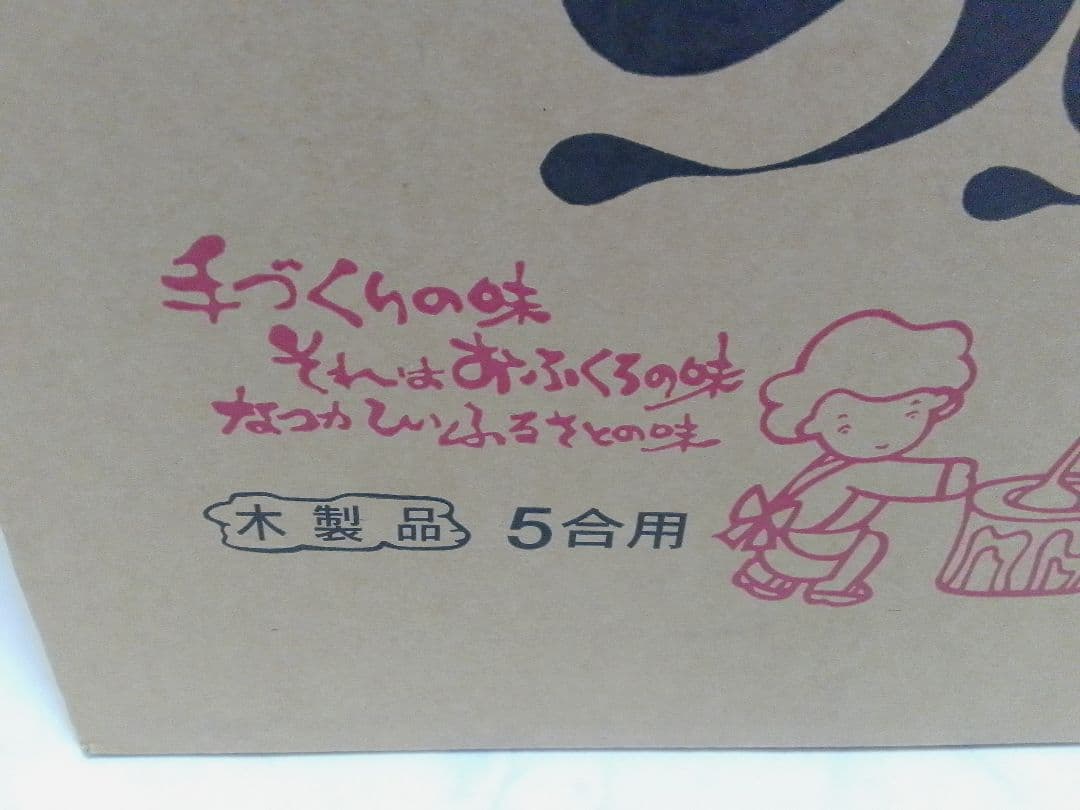 手づくりの味
それはおふくろの味
なつかしいふるさとの味
木製品 5合用